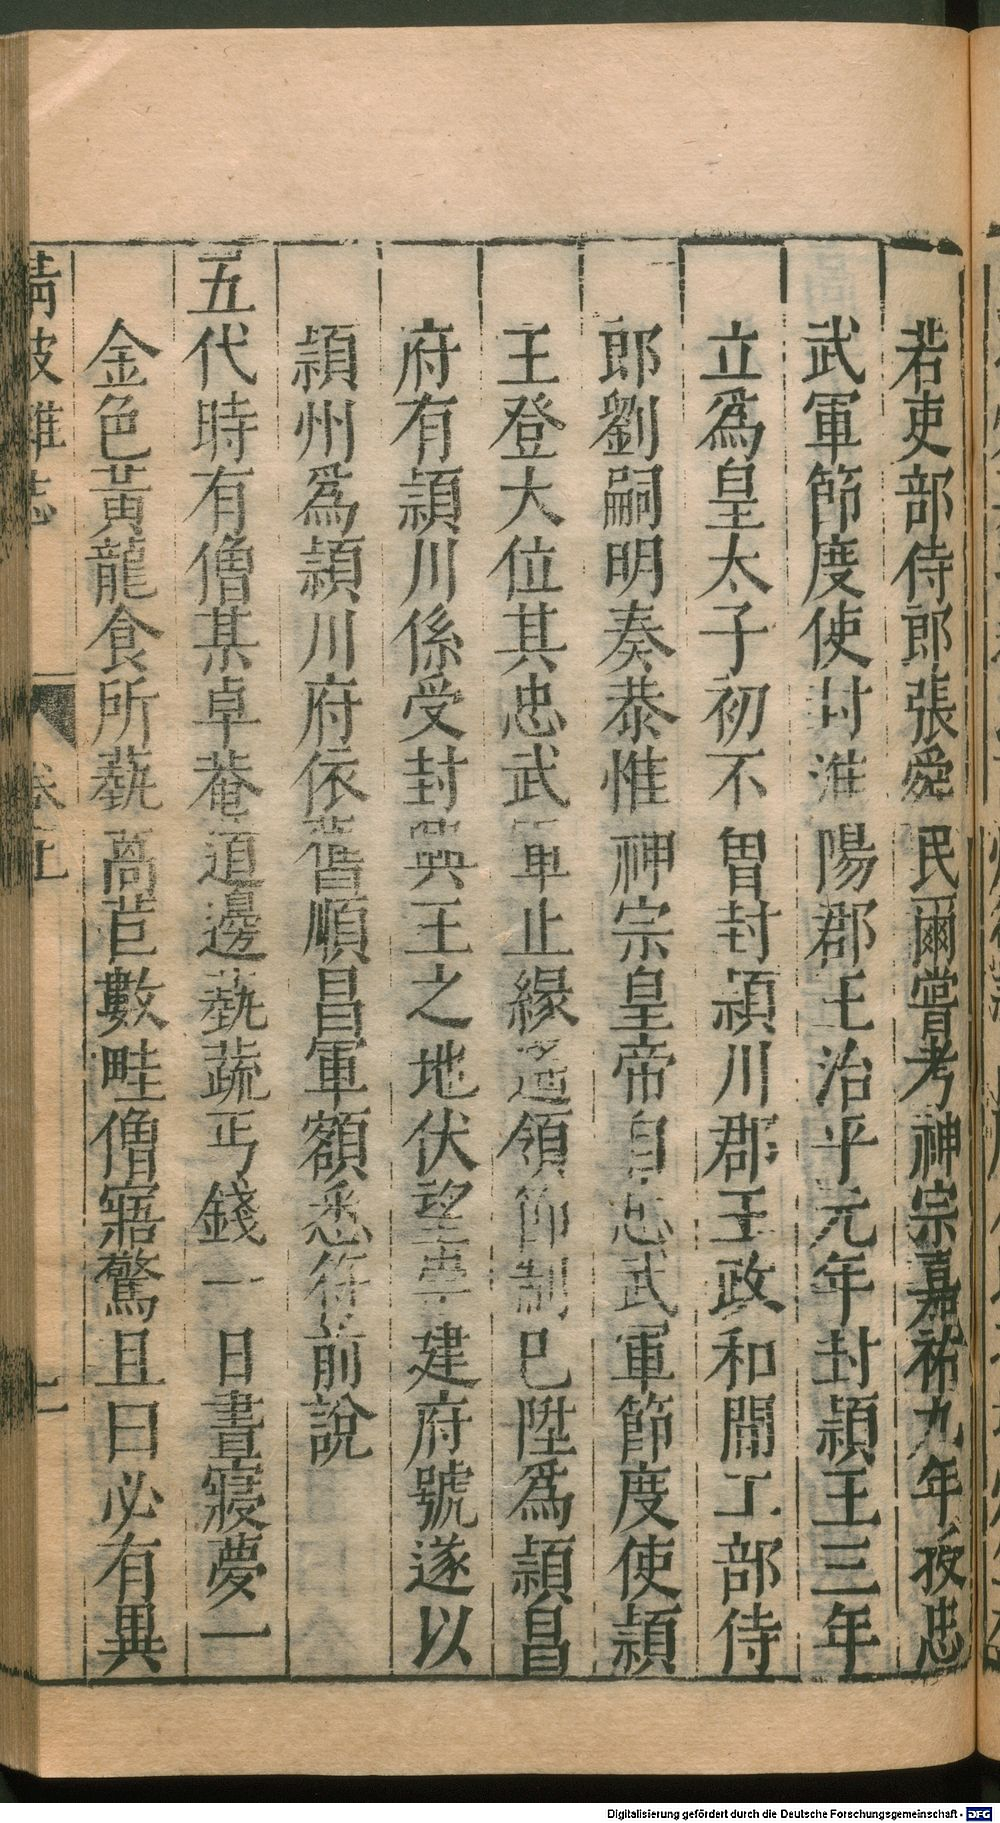 若吏部侍郎張舜民爾嘗考神宗嘉祐九年授忠
武軍節度使封淮陽郡王治平元年封頴王三年
立爲皇太子初不曾封頴川郡王政和間工部侍
郎劉嗣明奏恭惟神宗皇帝自忠武軍節度使頴
王登大位其忠武軍止緣遥領節制已陞爲頴昌
府有頴川係受封興王之地伏望崇建府號遂以
頴州爲頴川府依舊順昌軍額悉符前說
五代時有僧某卓菴道邊蓺蔬丐錢一日晝寢夢一
金色黃龍食所蓺萵苣數畦僧寤驚且曰必有異
清波雜志
卷上
Digitalisierung gefördert durch die Deutsche Forschungsgemeinschaft - DFG